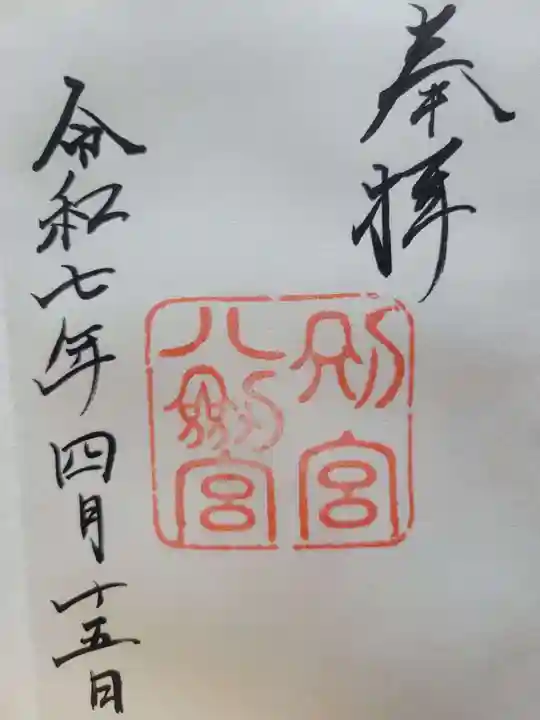 奉拝
別宮
八剱宮
令和七年四月十五日